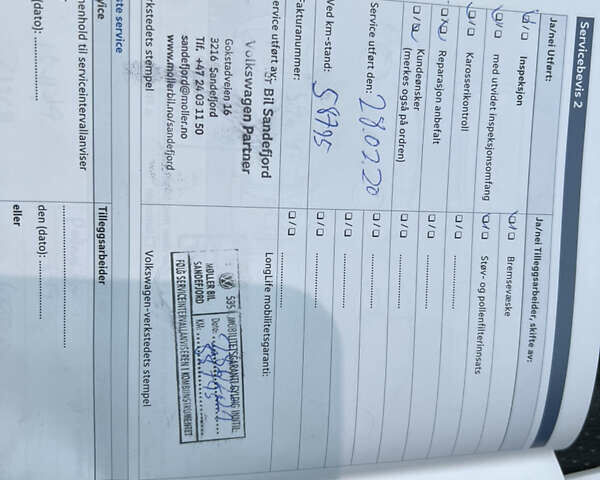 Servicebevis 2
Ja/nei Utført:
Inspeksjon
med utvidet inspeksjonsomfang
Karosserikontroll
Reparasjon anbefalt
Kundeønsker
(merkes også på ordren)
Service utført den: 28.02.20
Ved km-stand: 58795
Fakturanummer:
Service utført av:
Bil Sandefjord
Volkswagen Partner
Gokstadveien 16
3216 Sandefjord
Tlf. +47 24 03 11 50
sandefjord@moller.no
www.mollerbil.no/sandefjord
verkstedets stempel
Ja/nei Tilleggsarbeider, skifte av:
Bremsevæske
Støv- og pollenfilterinnsats
LongLife mobilitetsgaranti:
595 MOBILITETSGARANTI GYLDIG INNTIL:
MØLLER BIL
SANDEFJORD
Dato:
KM:
FØLG SERVICEINTERVALLANVISEREN I KOMBIINSTRUMENTET
Volkswagen-verkstedets stempel
ste service
vice
menhold til serviceintervallanviser
(dato):
Tilleggsarbeider
den (dato):
eller